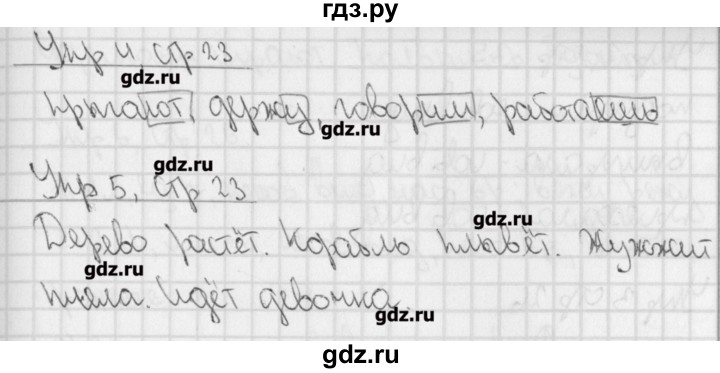 гдз.ру
Упр 4, стр 23
gdz.ru
прыгают, держу, говорим, работаешь
gdz.ru
gdz.ru
Упр 5, стр 23
gdz.ru
Дерево растёт. Корабль плывёт. Жужжит
gdz.ru
пчела. Идёт девочка.
gdz.ru
gdz.ru